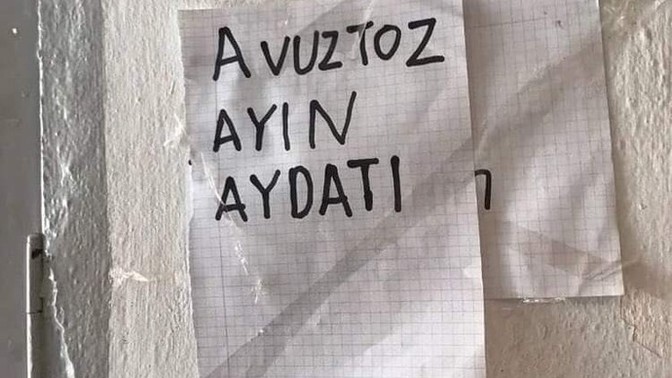 AVUZTOZ
AYIN
AYDATI